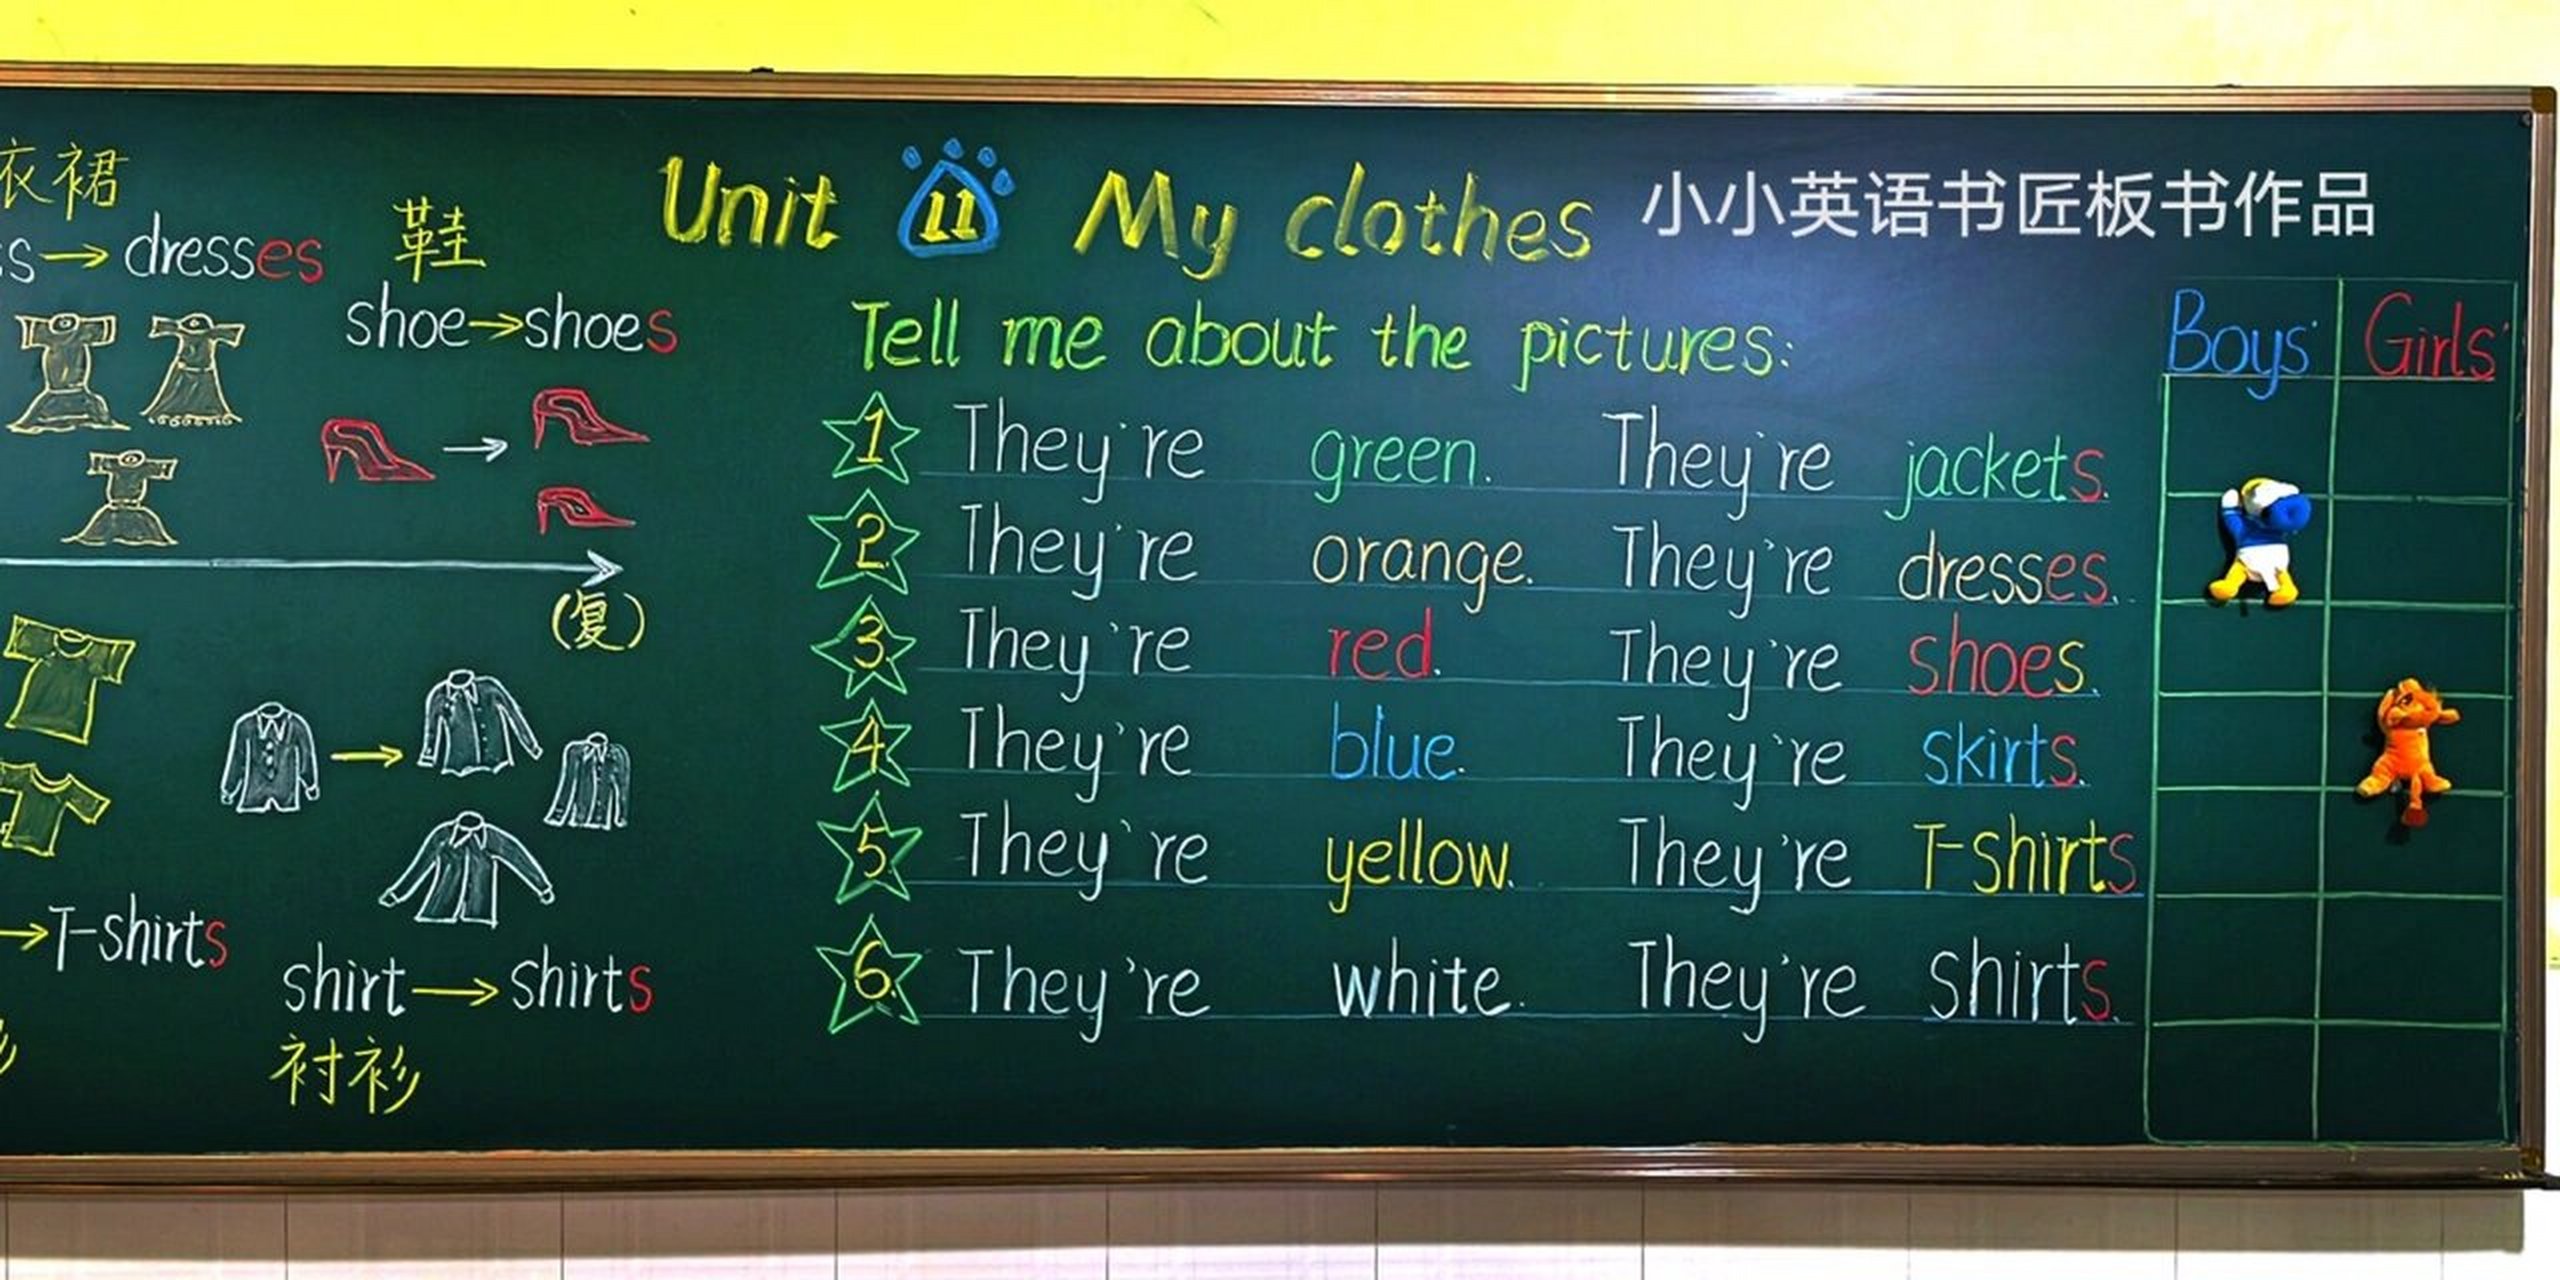 衣裙
→ dresses
鞋
shoe→shoes
(复)
→T-shirts
shirt→shirts
衬衫
Unit 11 My clothes
小小英语书匠板书作品
Tell me about the pictures:
1 They're green. They're jackets.
2 They're orange. They're dresses.
3 They're red. They're shoes.
4 They're blue. They're skirts.
5 They're yellow. They're T-shirts
6. They're white. They're shirts.
Boys' Girls'